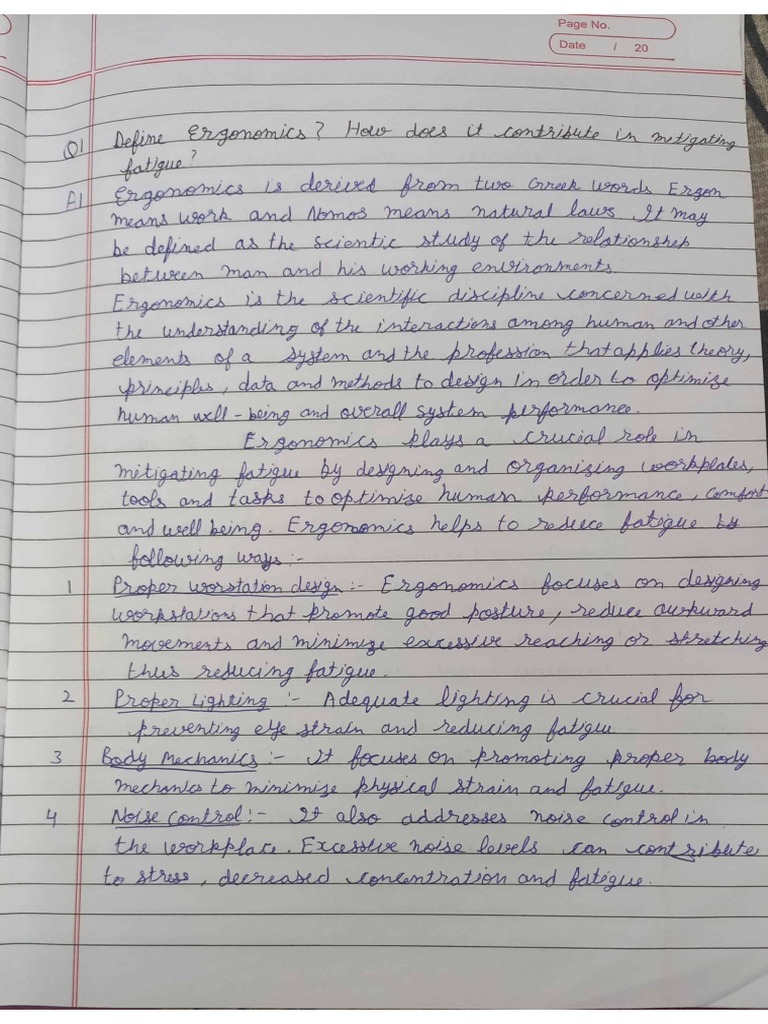 Page No.
Date / 20
Q1 Define Ergonomics? How does it contribute in mitigating
fatigue?
A1 Ergonomics is derived from two Greek words Ergon
means work and Nomos means natural laws. It may
be defined as the scientic study of the relationship
between man and his working environments
Ergonomics is the scientific discipline concerned with
the understanding of the interactions among human and other
elements of a system and the profession that applies theory,
principles, data and methods to design in order to optimise
human well-being and overall system performance.
Ergonomics plays a crucial role in
mitigating fatigue by designing and organising workplates,
tools and tasks to optimise human performance, comfort
and well being. Ergonomics helps to reduce fatigue by
following ways:-
1 Proper worstation design:- Ergonomics focuses on designing
workstations that promote good posture, reduce awkward
movements and minimize excessive reaching or stretching
thus reducing fatigue.
2 Proper Lighting :- Adequate lighting is crucial for
preventing eye strain and reducing fatigu
3 Body Mechanics:- It focuses on promoting proper body
mechanics to minimize physical strain and fatigue.
4 Noise Control:- It also addresses noise control in
the workplace. Excessive noise levels can contribute
to stress, decreased concentration and fatigue.